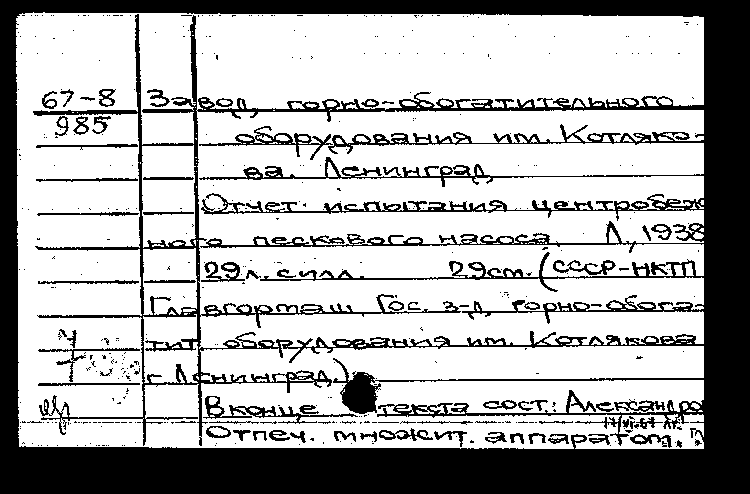 67-8
985
Завод горно-обогатительного
оборудования им. Котляко-
ва. Ленинград
Отчет испытания центробеж
ного пескового насоса Л, 1938
29 л. с илл. 29 см. (СССР-НКТП
Главгормаш Гос. з-д горно-обога-
тит. оборудования им. Котлякова
г. Ленинград.)
7
В конце текста сост.: Александро
Отпеч. множит. аппаратом.